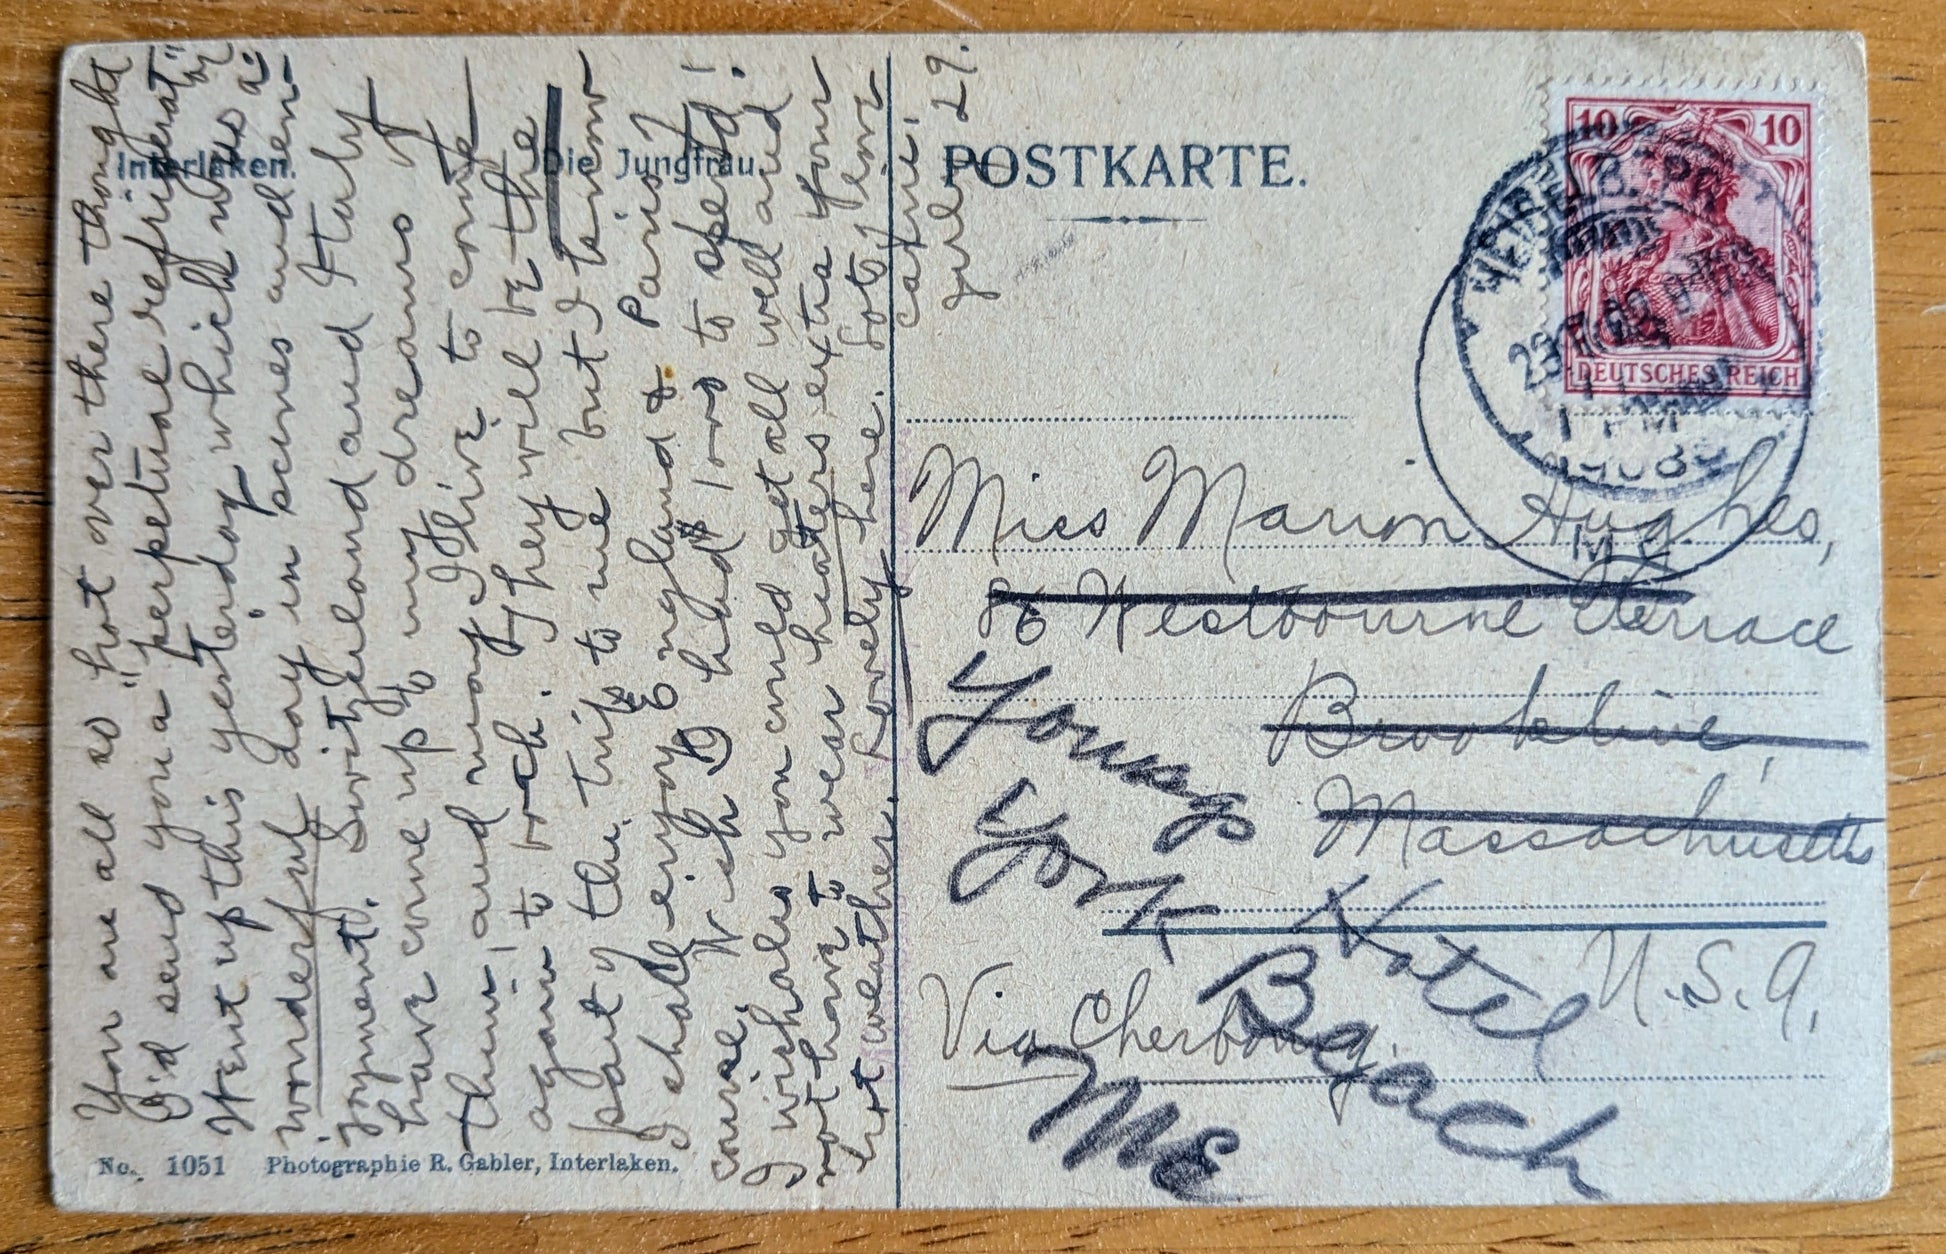 Interlaken.
Die Jungfrau.
POSTKARTE.
10 10
DEUTSCHES REICH
1 PM
1908
You are all so "hot over there thought
I'd send you a "perpetual refrigerator"
Went up this yesterday which was a
wonderful day in scenes and en-
joyment. Switzerland and Italy
have come up to my dreams of
them, and may I live to come
again to each. They will be the
part of the trip to me but I know
I shall enjoy England & Paris
Wish I had $1000 to spend!
course.
I wish also you could get all well and
not have to wear hunters extra your
hot weather. Lovely here. Lots of love
Catherine.
July 29.
Miss Marion Hughes,
86 Westbourne Terrace
Brookline,
Massachusetts
U.S.A.
Via Cherbourg.
Youngs
York
Hotel
Beach
ME
No. 1051 Photographie R. Gabler, Interlaken.